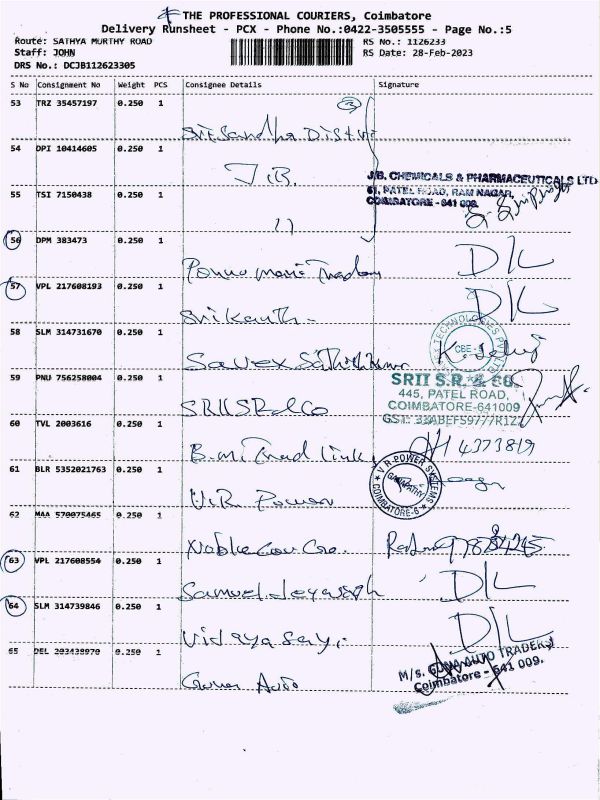 THE PROFESSIONAL COURIERS, Coimbatore
Delivery Runsheet - PCX - Phone No.:0422-3505555 - Page No.:5
Route: SATHYA MURTHY ROAD RS No.: 1126233
Staff: JOHN RS Date: 28-Feb-2023
DRS No.: DCJB112623305
S No Consignment No Weight PCS Consignee Details Signature
53 TRZ 35457197 0.250 1
54 DPI 10414605 0.250 1 J.B.
J.B. CHEMICALS & PHARMACEUTICALS LTD
61, PATEL ROAD, RAM NAGAR,
COIMBATORE - 641 009.
55 TSI 7150438 0.250 1 11
56 DPM 383473 0.250 1 D/L
57 VPL 217608193 0.250 1 Srikanth D/L
58 SLM 314731670 0.250 1 Savex
CBE
59 PNU 756258004 0.250 1 SRII SR & Co
SRII S.R. & CO.
445, PATEL ROAD,
COIMBATORE-641009
60 TVL 2003616 0.250 1 B.M. Trad link
61 BLR 5352021763 0.250 1 V.R. Power
V R-POWER SYSTEMS
GANAPATHY
COIMBATORE-6
62 MAA 570075465 0.250 1
63 VPL 217608554 0.250 1 Samuel D/L
64 SLM 314739846 0.250 1 D/L
65 DEL 203438970 0.250 1 Guna Auto
M/s. GUNA AUTO TRADERS
Coimbatore - 641 009.